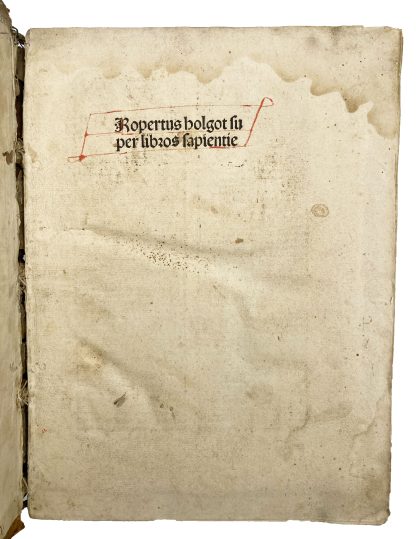 Ropertus holgot ſu
per libros ſapientie